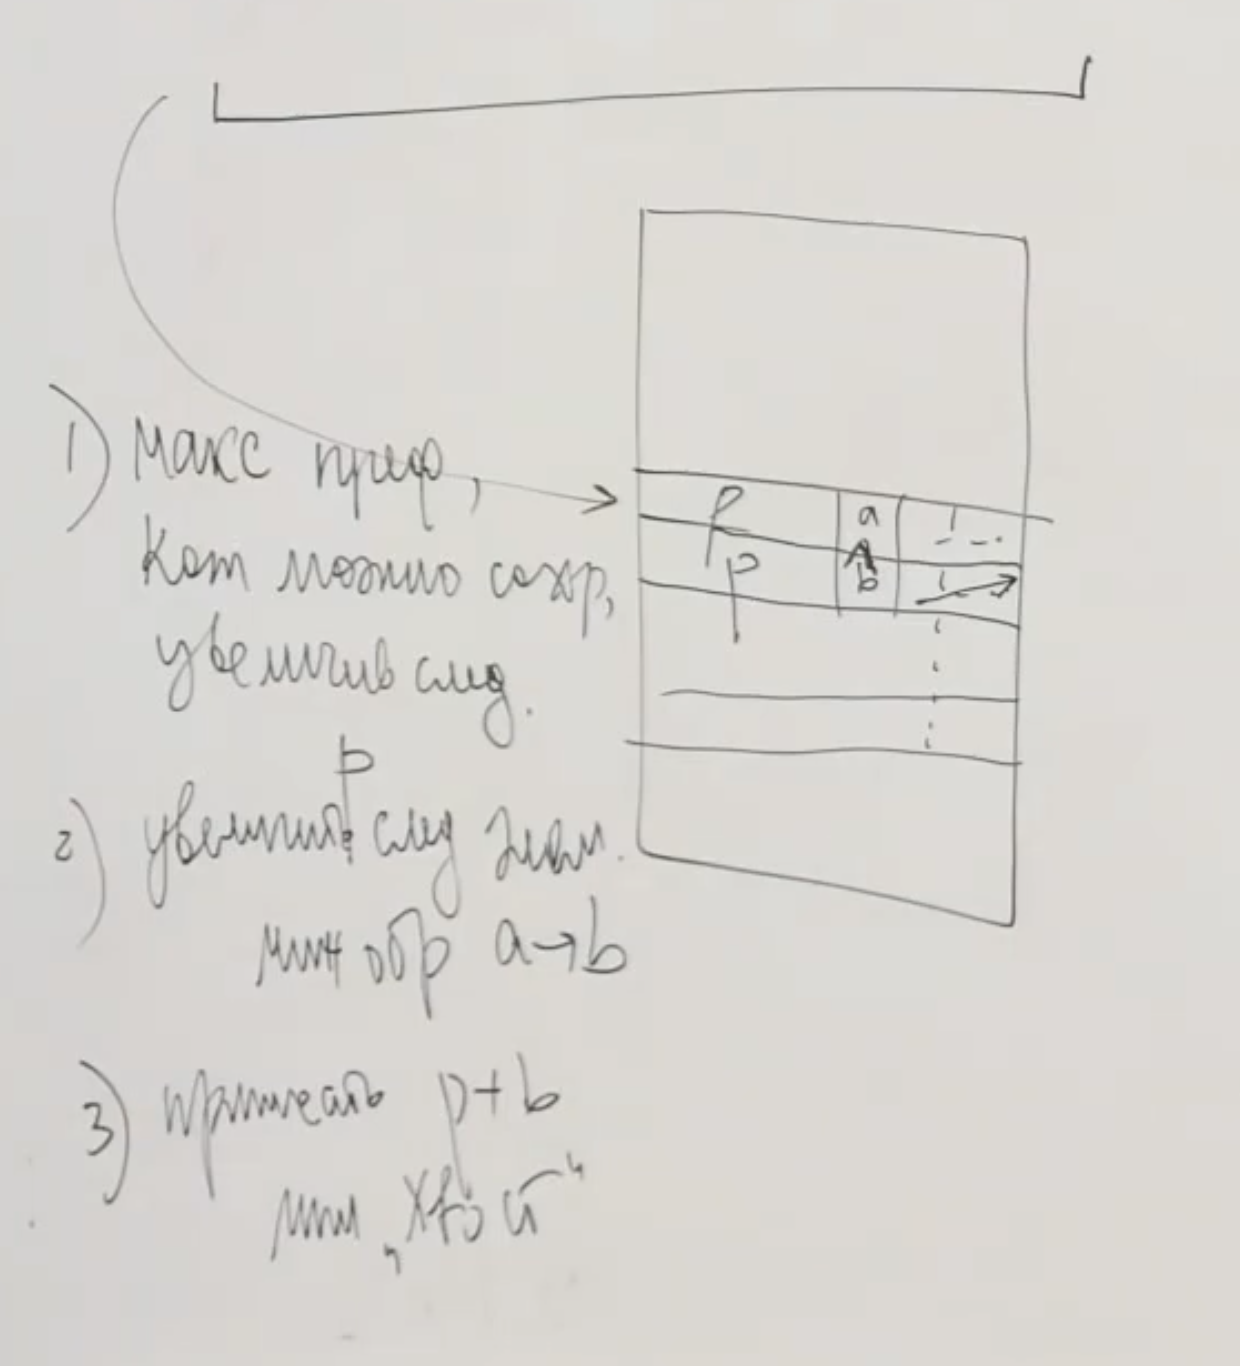 1) Макс преф,
Кот можно сохр,
увеличив след.
p
2) увеличить след элем.
мин обр a→b
3) приписать p+b
мин „хвост“
p a
p b